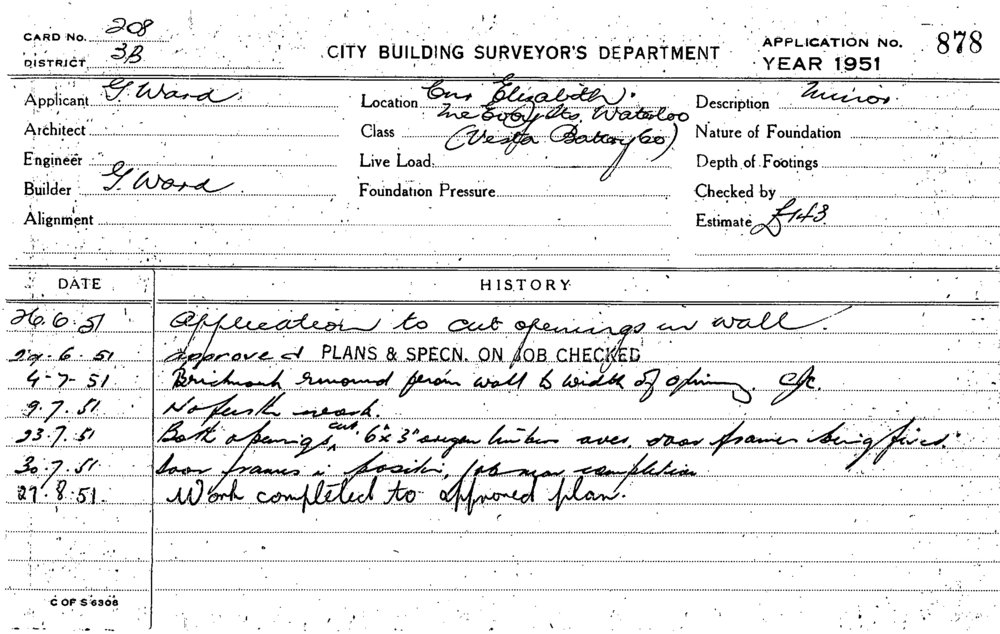 CARD No. 208
DISTRICT 3B
CITY BUILDING SURVEYOR'S DEPARTMENT
APPLICATION No. 878
YEAR 1951
Applicant G. Ward.
Architect
Engineer
Builder G. Ward
Alignment
Location Cnr Elizabeth.
McEvoy Sts. Waterloo
Class (Vesta Battery Co)
Live Load
Foundation Pressure
Description Minor
Nature of Foundation
Depth of Footings
Checked by
Estimate £143
DATE HISTORY
26.6.51 Application to cut openings in wall.
6.51 Approved PLANS & SPECN. ON JOB CHECKED
4-7-51 Brickwork removed from wall to width of opening.
9.7.51 No further work.
23.7.51 Both openings cut 6"x3" oregon timbers over, door frames being fixed.
30.7.51 Door frames in position, job near completion
27.8.51. Work completed to approved plan.
C OF S 6306